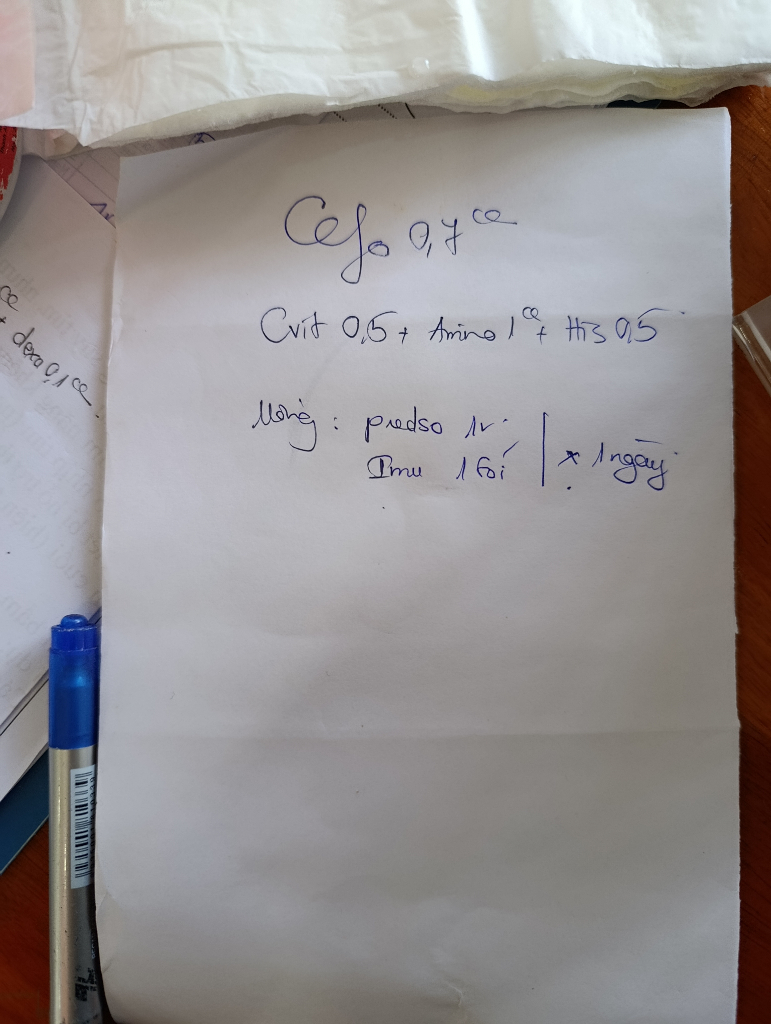 Cefo 0,7 cc
Cvit 0,5 + Amino 1 cc + His 0,5
Uống: predso 1v
Imu 1 gói
x 1 ngày
cc
+ dexa 0,1 cc